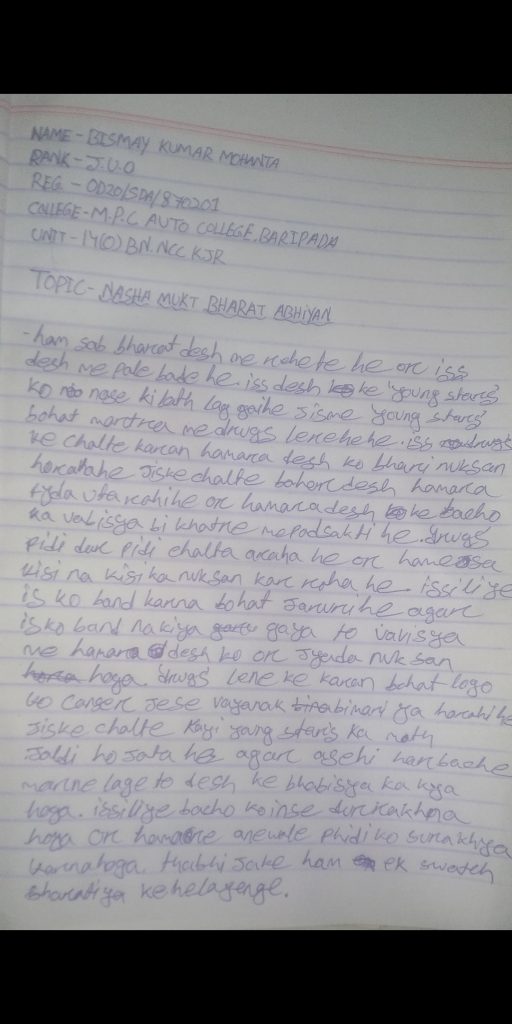 NAME - BISMAY KUMAR MOHANTA
RANK - J.U.O
REG. - OD20/SDA/870201
COLLEGE - M.P.C AUTO COLLEGE, BARIPADA
UNIT - 14(O) BN. NCC KJR
TOPIC - NASHA MUKT BHARAT ABHIYAN
- ham sab bharat desh me rehete he or iss
desh me pale bade he. iss desh ke 'young stars'
ko nase ki lath lag gaihe jisme 'young stars'
bohat martra me drugs lerehehe. iss drugs
ke chalte karan hamara desh ko bhari nuksan
horahahe jiske chalte desh hamara
uta rahihe or hamara desh ke bacho
ka vabisya bi khatre me padsakti he. drugs
pidi dar pidi chalta araha he or hamesa
kisi na kisi ka nuksan kar reha he. issiliye
is ko band karna bohat jaruri he agar
is ko band na kiya gaya to vavisya
me hamara desh ko or jyada nuksan
hoga. 'drugs' lene ke karan bohat logo
ko cancer jese vayanak bimari ya horahi he
jiske chalte kayi young stars ka moth
jaldi ho jata he agar asehi harbache
marne lage to desh ke bhabisya ka kya
hoga. issiliye bacho ko inse dur rakhna
hoga or hamare anewale phidi ko surakhya
karna hoga. thabhi jake ham ek swatch
bharatiya kehelayenge.